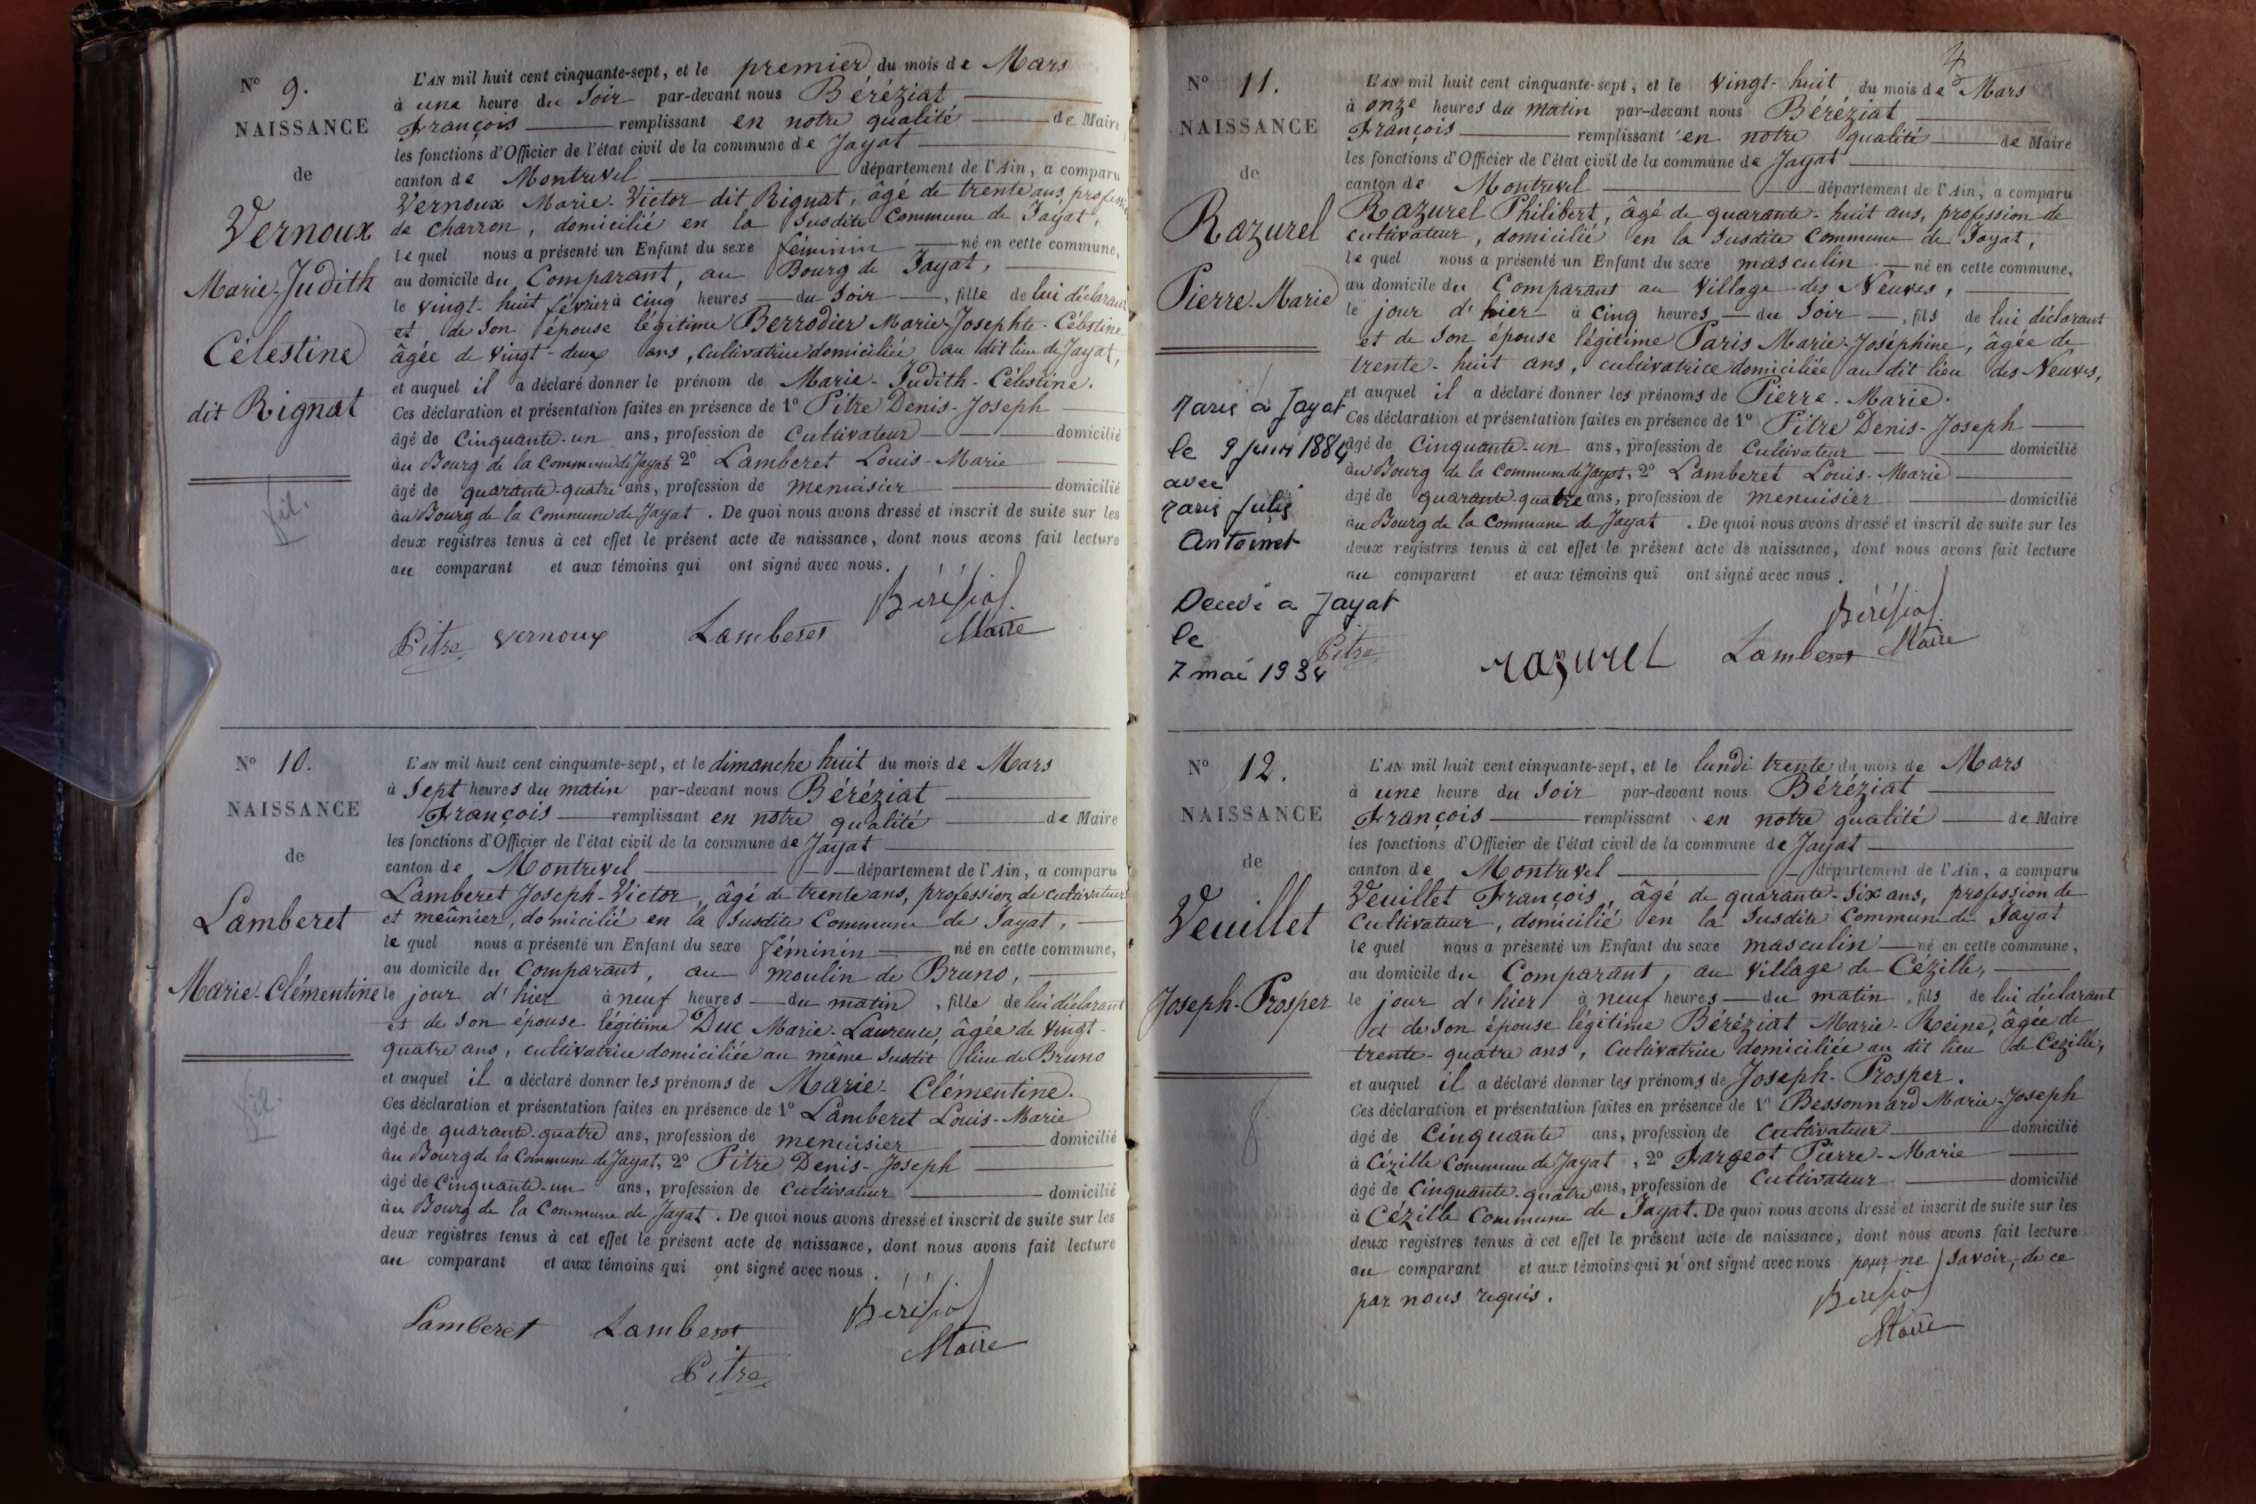 N° 9.
NAISSANCE
de
Vernoux
Marie-Judith
Célestine
dit Rignat
fil.
L'AN mil huit cent cinquante-sept, et le premier du mois de Mars
à une heure du Soir par-devant nous Béréziat
François remplissant en notre qualité de Maire
les fonctions d'Officier de l'état civil de la commune de Jayat
canton de Montrevel département de l'Ain, a comparu
Vernoux Marie-Victor dit Rignat, âgé de trente ans, profession
de charron, domicilié en la Susdite Commune de Jayat,
lequel nous a présenté un Enfant du sexe féminin né en cette commune,
au domicile du Comparant, au Bourg de Jayat,
le vingt-huit février à cinq heures du Soir, fille de lui déclarant
et de Son épouse légitime Berrodier Marie-Josephte-Célestine
âgée de vingt-deux ans, cultivatrice domiciliée au dit lieu de Jayat,
et auquel il a déclaré donner le prénom de Marie-Judith-Célestine.
Ces déclaration et présentation faites en présence de 1° Pitre Denis-Joseph
âgé de Cinquante-un ans, profession de Cultivateur domicilié
au Bourg de la Commune de Jayat 2° Lamberet Louis-Marie
âgé de quarante-quatre ans, profession de menuisier domicilié
au Bourg de la Commune de Jayat. De quoi nous avons dressé et inscrit de suite sur les
deux registres tenus à cet effet le présent acte de naissance, dont nous avons fait lecture
au comparant et aux témoins qui ont signé avec nous.
Pitre Vernoux Lamberet Béréziat
Maire
N° 10.
NAISSANCE
de
Lamberet
Marie-Clémentine
fil.
L'AN mil huit cent cinquante-sept, et le dimanche huit du mois de Mars
à Sept heures du matin par-devant nous Béréziat
François remplissant en notre qualité de Maire
les fonctions d'Officier de l'état civil de la commune de Jayat
canton de Montrevel département de l'Ain, a comparu
Lamberet Joseph-Victor, âgé de trente ans, profession de cultivateur
et meûnier, domicilié en la Susdite Commune de Jayat,
lequel nous a présenté un Enfant du sexe féminin né en cette commune,
au domicile du Comparant, au moulin de Bruno,
le jour d'hier à neuf heures du matin, fille de lui déclarant
et de Son épouse légitime Duc Marie-Laurence, âgée de vingt-
quatre ans, cultivatrice domiciliée au même susdit lieu de Bruno
et auquel il a déclaré donner les prénoms de Marie-Clémentine.
Ces déclaration et présentation faites en présence de 1° Lamberet Louis-Marie
âgé de quarante-quatre ans, profession de menuisier domicilié
au Bourg de la Commune de Jayat, 2° Pitre Denis-Joseph
âgé de Cinquante-un ans, profession de Cultivateur domicilié
au Bourg de la Commune de Jayat. De quoi nous avons dressé et inscrit de suite sur les
deux registres tenus à cet effet le présent acte de naissance, dont nous avons fait lecture
au comparant et aux témoins qui ont signé avec nous.
Lamberet Lamberet Béréziat
Pitre Maire
N° 11.
NAISSANCE
de
Razurel
Pierre-Marie
Marié à Jayat
le 9 juin 1884
avec
Paris Julie
Antoinet
Décédé à Jayat
le
7 mai 1934
L'AN mil huit cent cinquante-sept, et le vingt-huit du mois de Mars
à onze heures du matin par-devant nous Béréziat
François remplissant en notre qualité de Maire
les fonctions d'Officier de l'état civil de la commune de Jayat
canton de Montrevel département de l'Ain, a comparu
Razurel Philibert, âgé de quarante-huit ans, profession de
cultivateur, domicilié en la Susdite Commune de Jayat,
lequel nous a présenté un Enfant du sexe masculin né en cette commune,
au domicile du Comparant au Village des Neuves,
le jour d'hier à cinq heures du Soir, fils de lui déclarant
et de Son épouse légitime Paris Marie-Joséphine, âgée de
trente-huit ans, cultivatrice domiciliée au dit lieu des Neuves,
et auquel il a déclaré donner les prénoms de Pierre-Marie.
Ces déclaration et présentation faites en présence de 1° Pitre Denis-Joseph
âgé de Cinquante-un ans, profession de Cultivateur domicilié
au Bourg de la Commune de Jayat, 2° Lamberet Louis-Marie
âgé de quarante-quatre ans, profession de menuisier domicilié
au Bourg de la Commune de Jayat. De quoi nous avons dressé et inscrit de suite sur les
deux registres tenus à cet effet le présent acte de naissance, dont nous avons fait lecture
au comparant et aux témoins qui ont signé avec nous.
Pitre razurel Lamberet Béréziat
Maire
N° 12.
NAISSANCE
de
Veuillet
Joseph-Prosper
L'AN mil huit cent cinquante-sept, et le lundi trente du mois de Mars
à une heure du Soir par-devant nous Béréziat
François remplissant en notre qualité de Maire
les fonctions d'Officier de l'état civil de la commune de Jayat
canton de Montrevel département de l'Ain, a comparu
Veuillet François, âgé de quarante-Six ans, profession de
Cultivateur, domicilié en la Susdite Commune de Jayat
lequel nous a présenté un Enfant du sexe masculin né en cette commune,
au domicile du Comparant, au Village de Cézille,
le jour d'hier à neuf heures du matin, fils de lui déclarant
et de Son épouse légitime Béréziat Marie-Reine, âgée de
trente-quatre ans, Cultivatrice domiciliée au dit lieu de Cezille,
et auquel il a déclaré donner les prénoms de Joseph-Prosper.
Ces déclaration et présentation faites en présence de 1° Bessonnard Marie-Joseph
âgé de Cinquante ans, profession de Cultivateur domicilié
à Cézille Commune de Jayat, 2° Fargeot Pierre-Marie
âgé de Cinquante-quatre ans, profession de Cultivateur domicilié
à Cézille Commune de Jayat. De quoi nous avons dressé et inscrit de suite sur les
deux registres tenus à cet effet le présent acte de naissance, dont nous avons fait lecture
au comparant et aux témoins qui n'ont signé avec nous pour ne savoir, de ce
par nous requis.
Béréziat
Maire